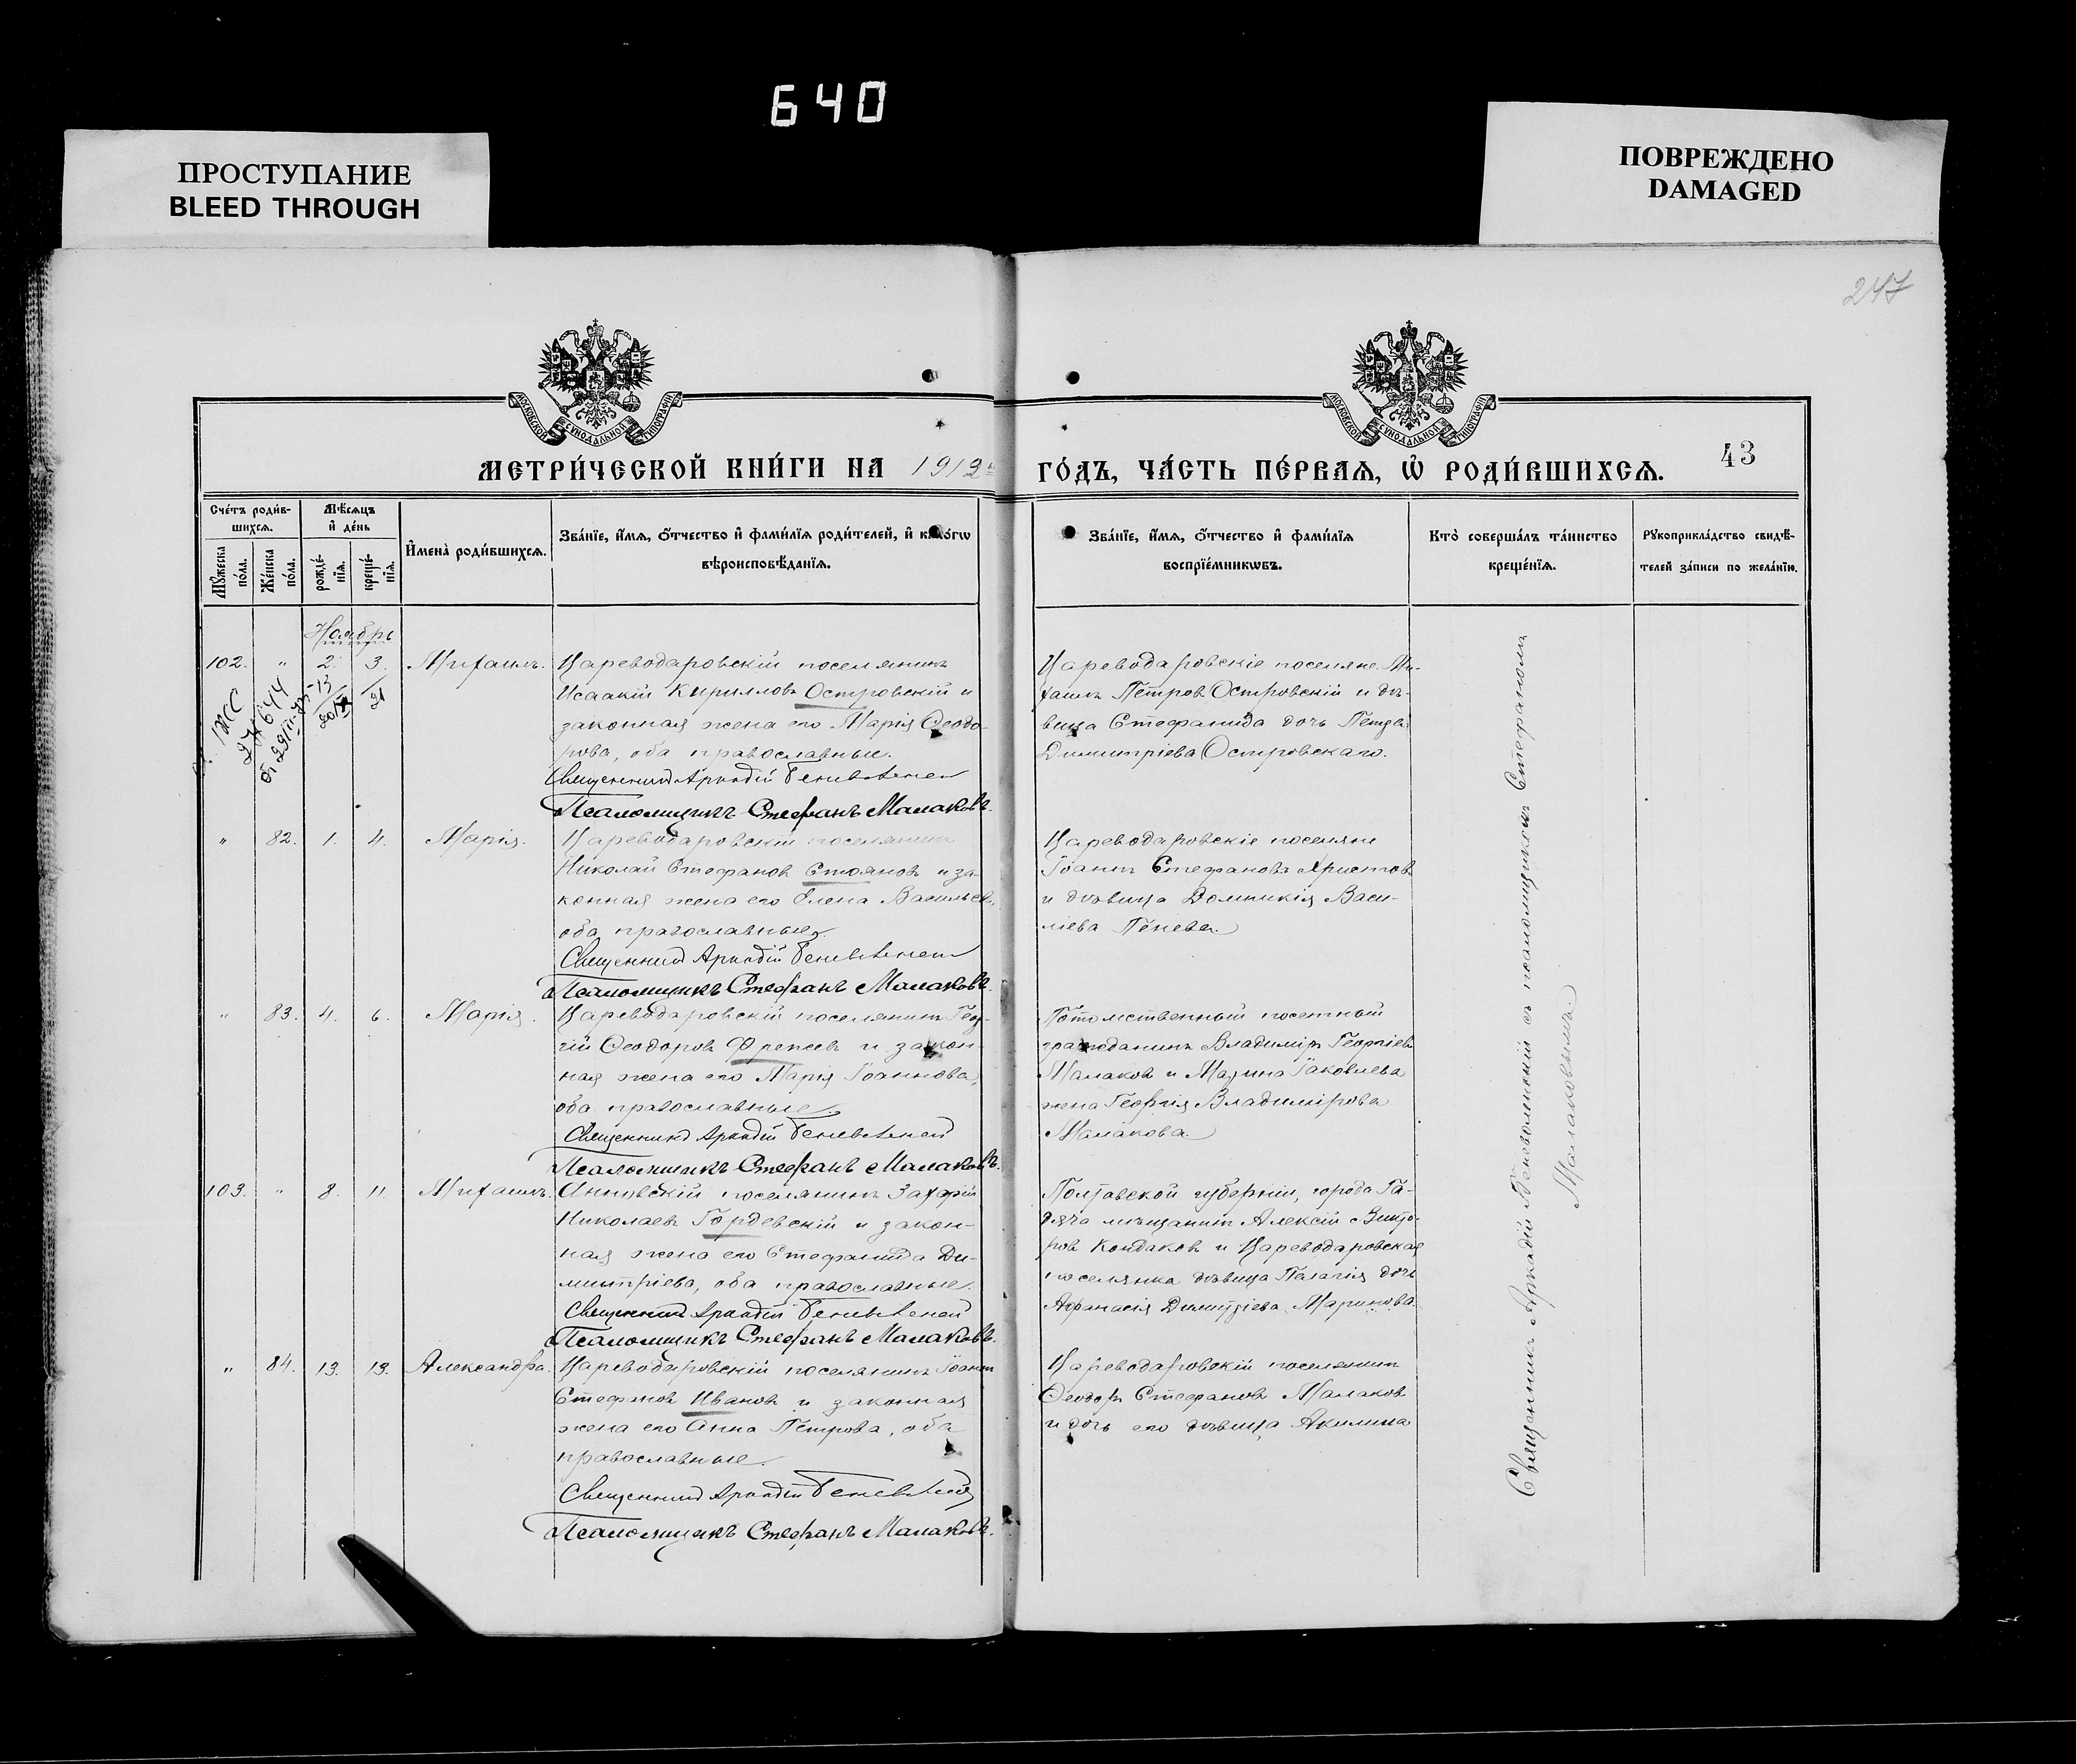 640
ПРОСТУПАНИЕ
BLEED THROUGH
ПОВРЕЖДЕНО
DAMAGED
247
МОСКОВСКОЙ СУНОДАЛЬНОЙ ТИПОГРАФІИ
МОСКОВСКОЙ СУНОДАЛЬНОЙ ТИПОГРАФІИ
МЕТРИ́ЧЕСКОЙ КНИ́ГИ НА 1912
ГО́ДЪ, ЧА́СТЬ ПЕ́РВАѦ, Ѡ РОДИ́ВШИХСѦ.
43
Сче́тъ роди́в-
шихсѧ.
Мꙋжеска по́ла.
Же́нска по́ла.
Мѣ́сѧцъ
и҆ де́нь
рожде́-
нїѧ.
креще́-
нїѧ.
И҆мена̀ роди́вшихсѧ.
Зва́нїе, и҆́мѧ, ѻ҆́тчество и҆ фами́лїѧ роди́телей, и҆ како́гѡ
вѣроисповѣ́данїѧ.
Зва́нїе, и҆́мѧ, ѻ҆́тчество и҆ фами́лїѧ
воспрїе́мникѡвъ.
Кто̀ соверша́лъ та́инство
креще́нїѧ.
Рꙋкоприкла́дство свидѣ́-
телей за́писи по жела́нїю.
Ноябрь
102. " 2. 3. Михаилъ.
Цареводаровскій поселянинъ
Исаакій Кирилловъ Островскій и
законная жена его Марія Ѳеодо-
рова, оба православные.
Священникъ Аркадій
Псаломщикъ Стефанъ Малаковъ.
Цареводаровскіе поселяне Ми-
хаилъ Петровъ Островскій и дѣ-
вица Стефанида дочь Петра
Димитріева Островскаго.
" 82. 1. 4. Марія.
Цареводаровскій поселянинъ
Николай Стефановъ Стояновъ и за-
конная жена его Елена Васильев.
оба православные.
Священникъ Аркадій
Псаломщикъ Стефанъ Малаковъ.
Цареводаровскіе поселяне
Іоаннъ Стефановъ Христовъ
и дѣвица Домникія Васи-
ліева Пенева.
" 83. 4. 6. Марія.
Цареводаровскій поселянинъ Геор-
гій Ѳеодоровъ и закон-
ная жена его Марія Іоаннова,
оба православные.
Священникъ Аркадій
Псаломщикъ Стефанъ Малаковъ.
Потомственный почетный
гражданинъ Владиміръ Георгіевъ
Малаковъ и Марина Іаковлева
жена Георгія Владимірова
Малакова.
103. " 8. 11. Михаилъ.
Анновскій поселянинъ Захарій
Николаевъ Гордевскій и закон-
ная жена его Стефанида Ди-
митріева, оба православные.
Священникъ Аркадій
Псаломщикъ Стефанъ Малаковъ.
Полтавской губерніи, города Га-
дяча мѣщанинъ Алексій Викто-
ровъ Кондаковъ и Цареводаровская
поселянка дѣвица Пелагія дочь
Аѳанасія Димитріева Маринова.
" 84. 13. 13. Александра.
Цареводаровскій поселянинъ Іоаннъ
Стефановъ Ивановъ и законная
жена его Анна Петрова, оба
православные.
Священникъ Аркадій
Псаломщикъ Стефанъ Малаковъ.
Цареводаровскій поселянинъ
Ѳеодоръ Стефановъ Малаковъ
и дочь его дѣвица Акилина
Священникъ Аркадій съ псаломщикомъ Стефаномъ
Малаковымъ.